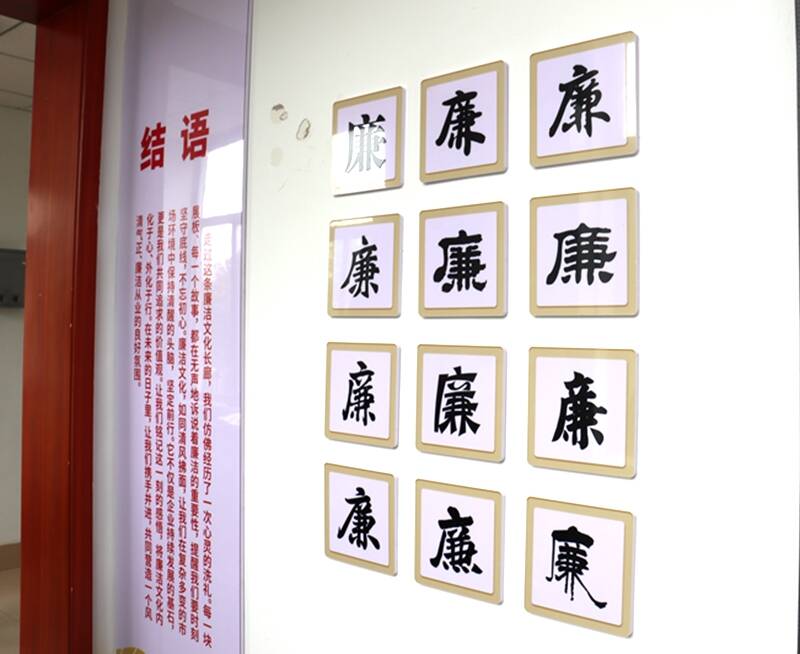 结语
走过这条廉洁文化长廊，我们仿佛经历了一次心灵的洗礼。每一块
展板、每一个故事，都在无声地诉说着廉洁的重要性，提醒我们要时刻
坚守底线，不忘初心。廉洁文化，如同清风拂面，让我们在复杂多变的市
场环境中保持清醒的头脑，坚定前行。它不仅是企业持续发展的基石，
更是我们共同追求的价值观。让我们铭记这一刻的感悟，将廉洁文化内
化于心、外化于行。在未来的日子里，让我们携手并进，共同营造一个风
清气正、廉洁从业的良好氛围。
廉 廉 廉
廉 廉 廉
廉 廉 廉
廉 廉 廉